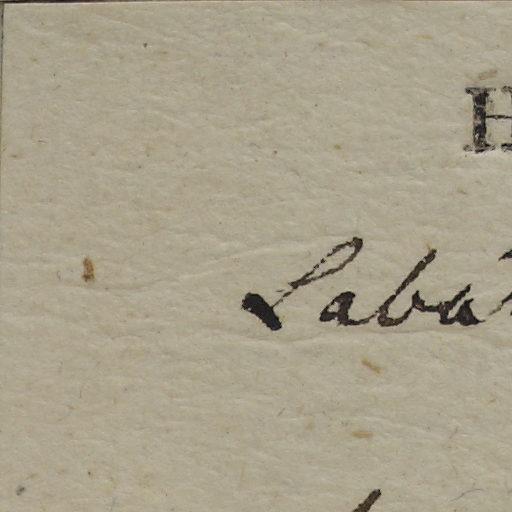 H
Labá